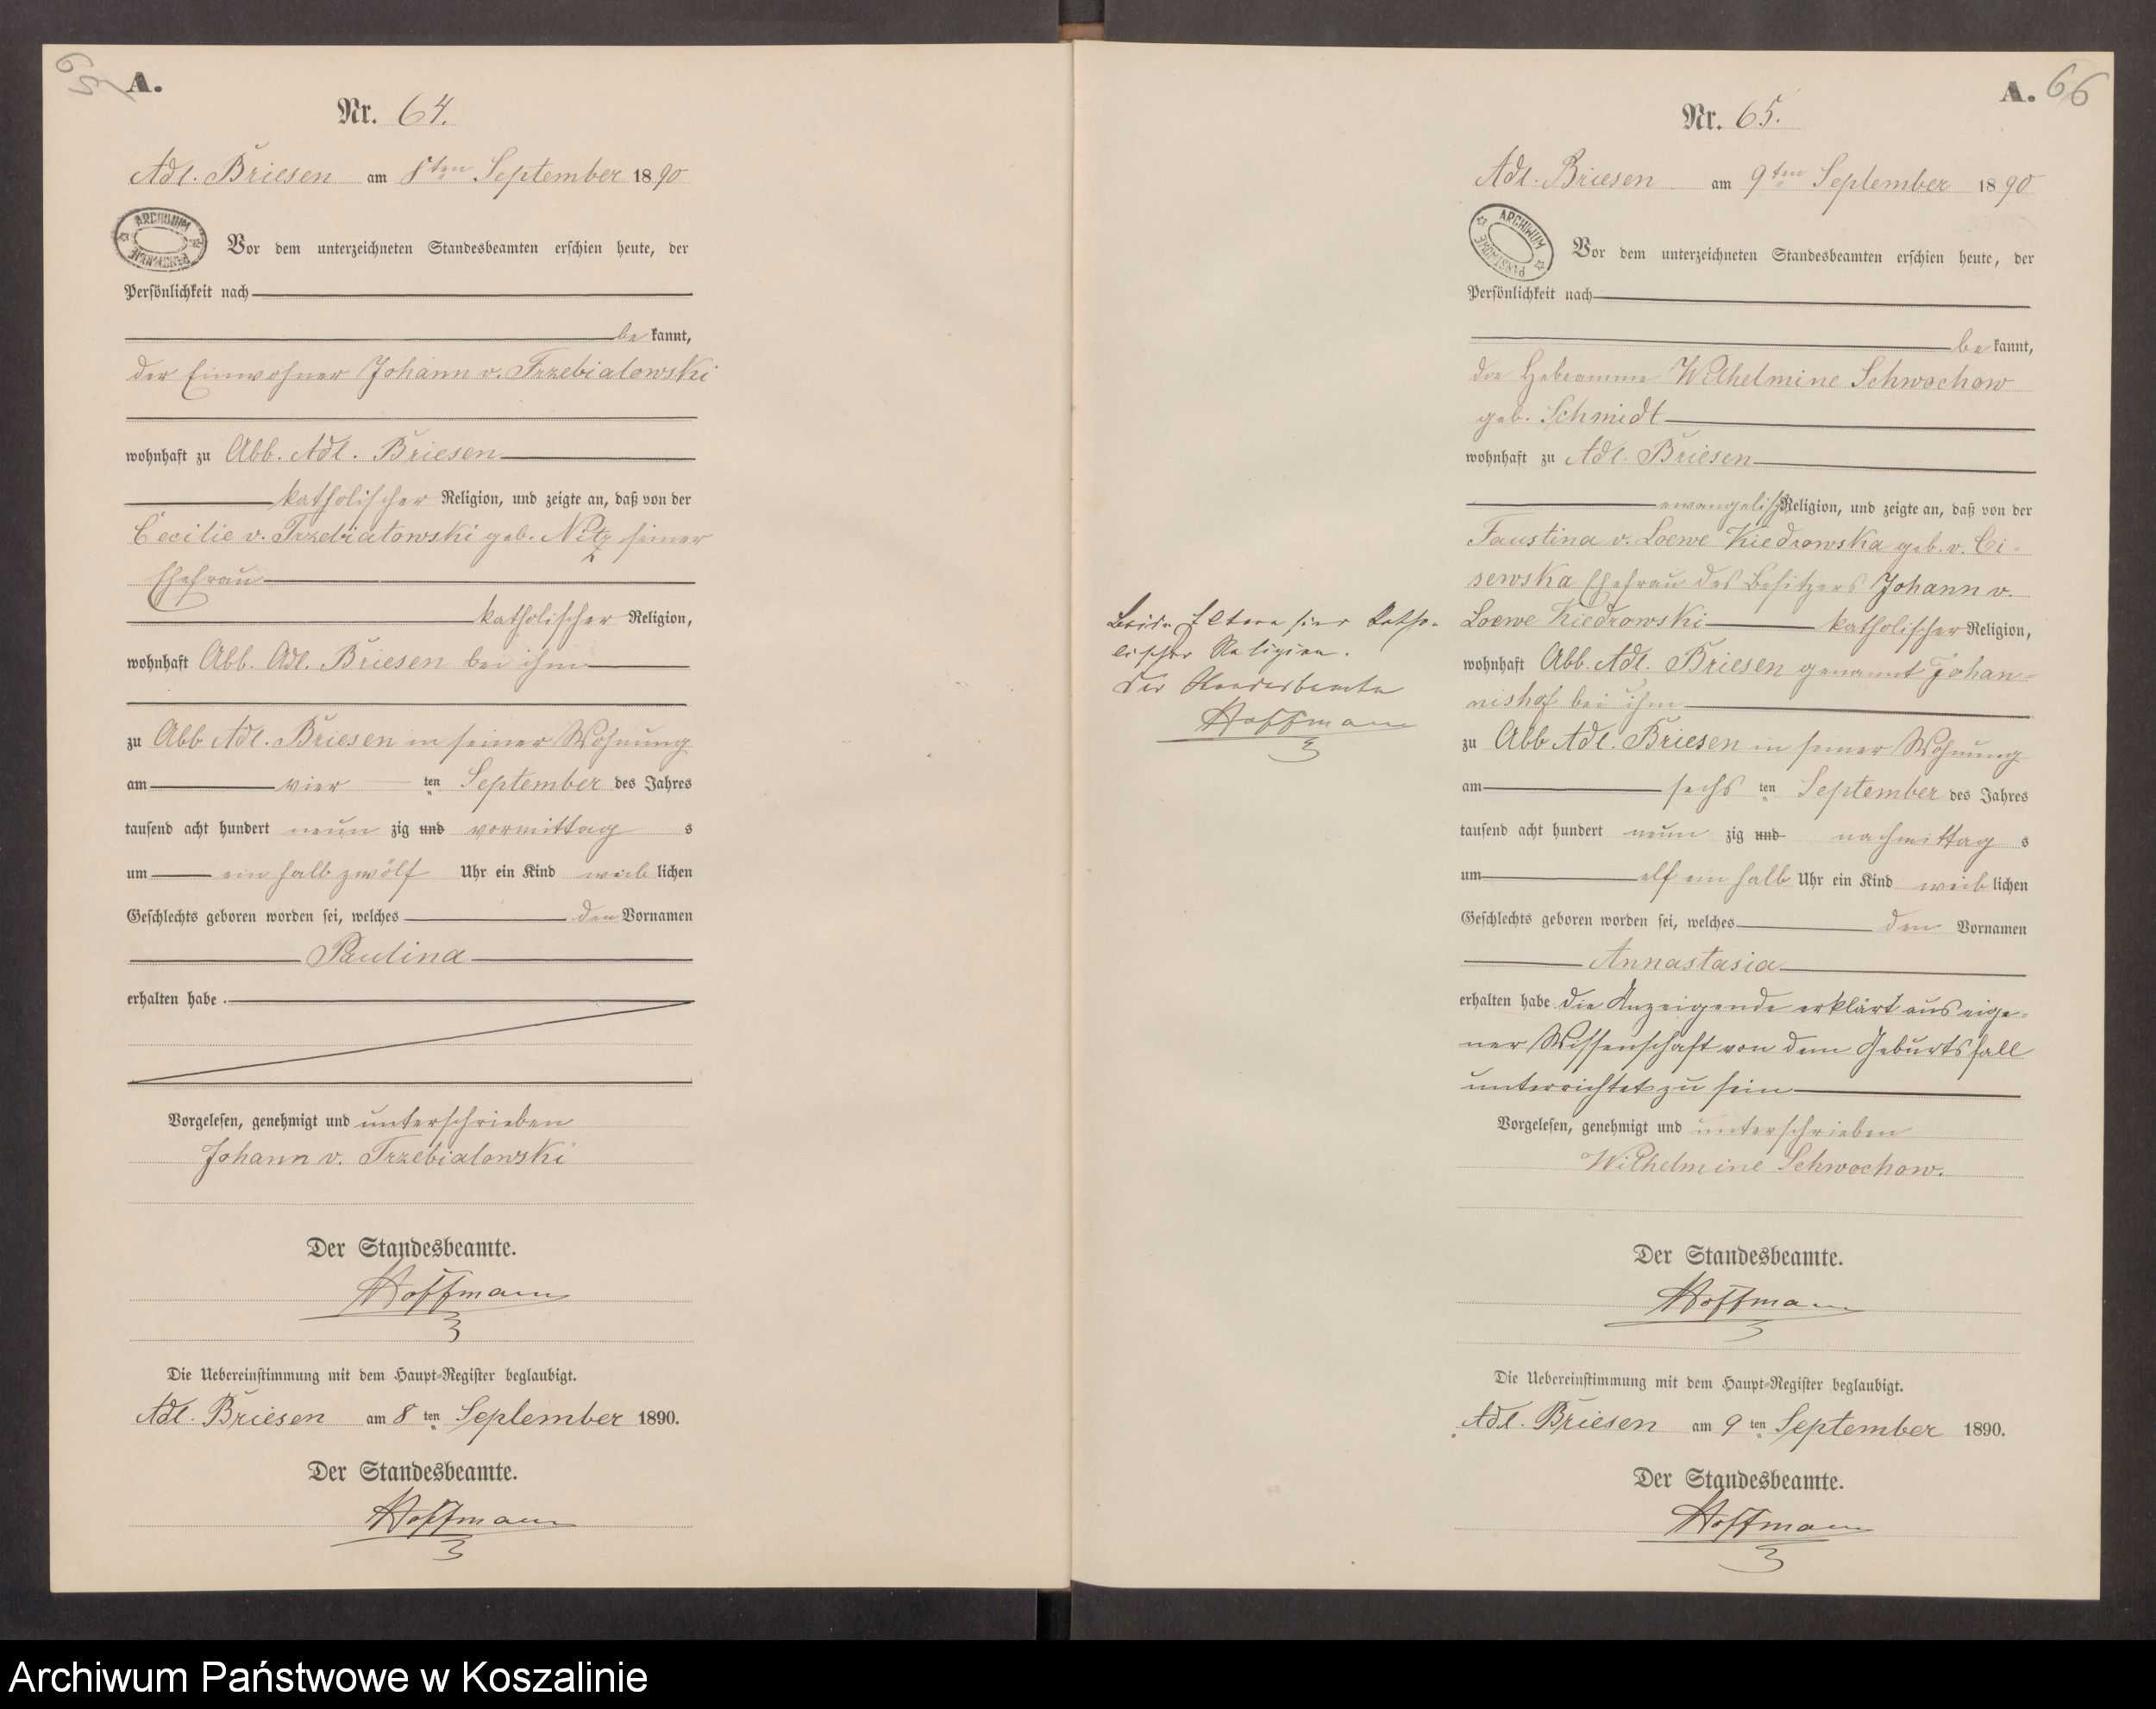 65
A.
Nr. 64.
Adl. Briesen am 8ten September 1890
ARCHIWUM PAŃSTWOWE
Vor dem unterzeichneten Standesbeamten erschien heute, der
Persönlichkeit nach
bekannt,
der Einwohner Johann v. Trzebiatowski
wohnhaft zu Abb. Adl. Briesen
katholischer Religion, und zeigte an, daß von der
Cecilie v. Trzebiatowski geb. Nitz seiner
Ehefrau
katholischer Religion,
wohnhaft Abb. Adl. Briesen bei ihm
zu Abb Adl. Briesen in seiner Wohnung
am vier ten September des Jahres
tausend acht hundert neun zig und vormittag s
um ein halb zwölf Uhr ein Kind weiblichen
Geschlechts geboren worden sei, welches den Vornamen
Paulina
erhalten habe.
Vorgelesen, genehmigt und unterschrieben
Johann v. Trzebiatowski
Der Standesbeamte.
Hoffmann
Die Uebereinstimmung mit dem Haupt-Register beglaubigt.
Adl. Briesen am 8 ten September 1890.
Der Standesbeamte.
Hoffmann
A. 66
Nr. 65.
Adl. Briesen am 9ten September 1890
ARCHIWUM PAŃSTWOWE
Vor dem unterzeichneten Standesbeamten erschien heute, der
Persönlichkeit nach
bekannt,
die Hebeamme Wilhelmine Schwochow
geb. Schmidt
wohnhaft zu Adl. Briesen
ewangelisch Religion, und zeigte an, daß von der
Faustina v. Loewe Kiedrowska geb. v. Ci-
sewska Ehefrau des Besitzers Johann v.
Loewe Kiedrowski katholischer Religion,
wohnhaft Abb. Adl. Briesen genannt Johan-
nishof bei ihm
zu Abb Adl. Briesen in seiner Wohnung
am sechs ten September des Jahres
tausend acht hundert neun zig und nachmittag s
um elf ein halb Uhr ein Kind weiblichen
Geschlechts geboren worden sei, welches den Vornamen
Annastasia
erhalten habe die Anzeigende erklärt aus eige-
ner Wissenschaft von dem Geburtsfall
unterrichtet zu sein
Vorgelesen, genehmigt und unterschrieben
Wilhelmine Schwochow.
Der Standesbeamte.
Hoffmann
Die Uebereinstimmung mit dem Haupt-Register beglaubigt.
Adl. Briesen am 9 ten September 1890.
Der Standesbeamte.
Hoffmann
Beide Eltern sind katho-
lischer Religion.
Der Standesbeamte
Hoffmann
Archiwum Państwowe w Koszalinie